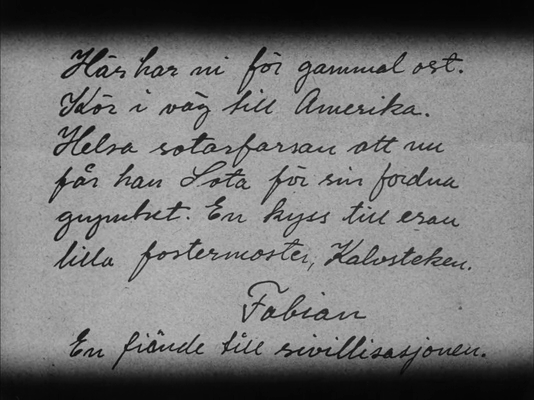 Här har ni för gammal ost.
Kör i väg till Amerika.
Helsa sotarfarsan att nu
får han Sota för sin fordna
grymhet. En kyss till eran
lilla fostermoster, Kalvsteken.
Fabian
En fiände till sivillisasjonen.